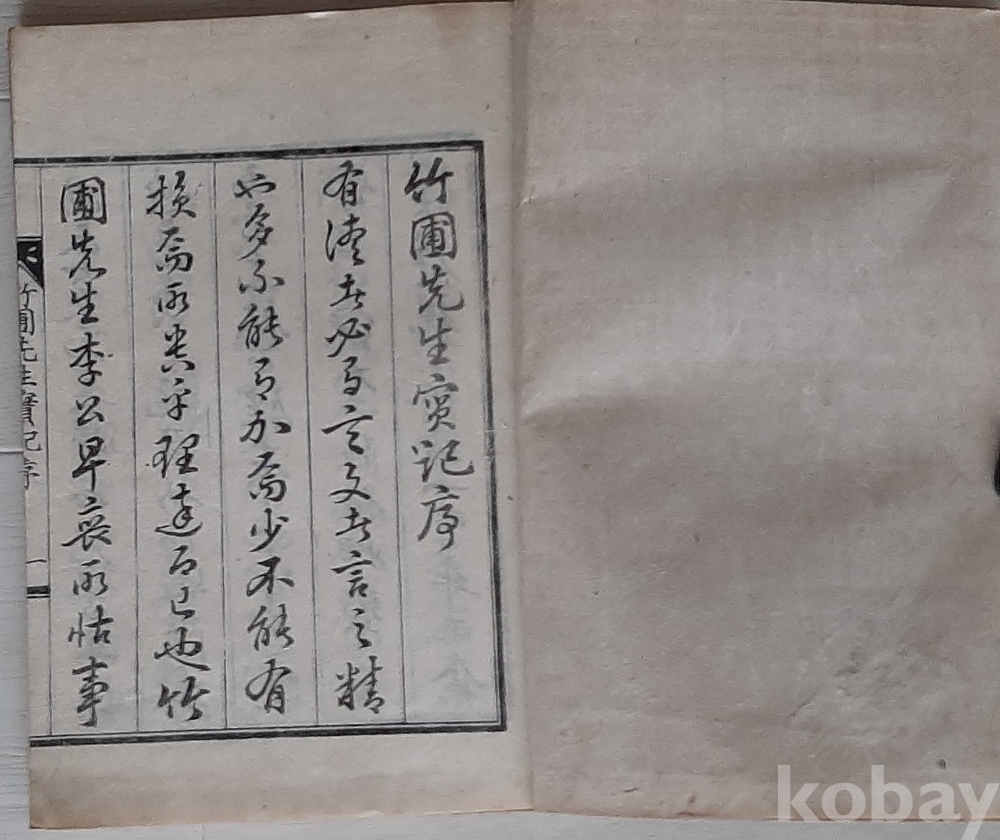 竹圃先生實記序
有德者必有言文者言之精
也多不能有加焉少不能有
損焉所貴乎理達而已也竹
圃先生李公早喪所怙事
竹圃先生實記序 一
kobay